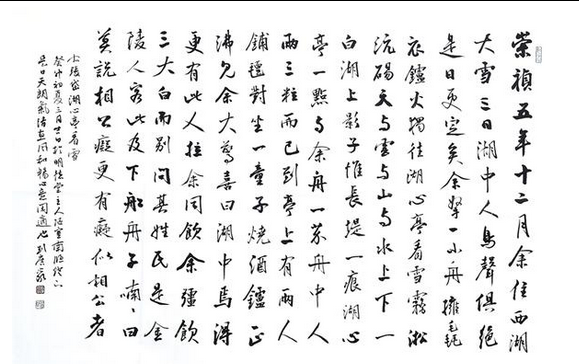 崇禎五年十二月余住西湖
大雪三日湖中人鳥聲俱絶
是日更定矣余拏一小舟擁毳
衣鑪火獨往湖心亭看雪霧淞
沆碭天与雲与山与水上下一
白湖上影子惟長堤一痕湖心
亭一點与余舟一芥舟中人
兩三粒而已到亭上有兩人
鋪氈對坐一童子燒酒鑪正
沸見余大驚喜曰湖中焉得
更有此人拉余同飲余彊飲
三大白而别問其姓氏是金
陵人客此及下船舟子喃喃曰
莫說相公癡更有癡似相公者
張岱湖心亭看雪
癸卯初夏三月廿日於明德堂主人
是日天朗氣清惠風和暢心意閑適也